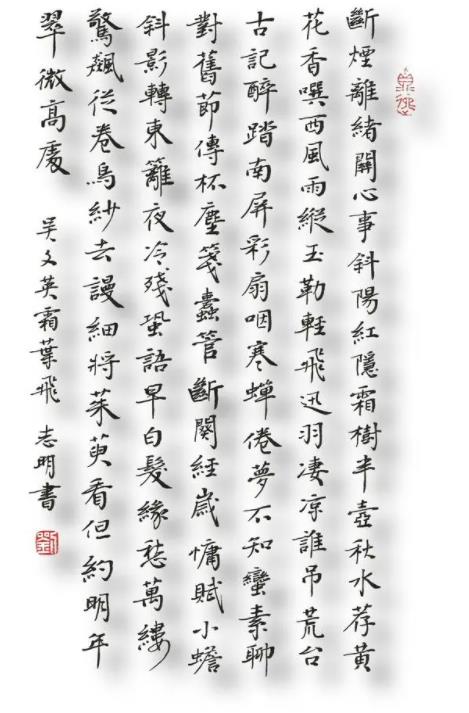 斷煙離緒關心事斜陽紅隱霜樹半壺秋水荐黃
花香噀西風雨縱玉勒輕飛迅羽凄凉誰吊荒台
古記醉踏南屏彩扇咽寒蟬倦夢不知蠻素聊
對舊節傳杯塵箋蠹管斷闋經歲慵賦小蟾
斜影轉東籬夜冷殘蛩語早白髮緣愁萬縷
驚飆從卷烏紗去謾細將茱萸看但約明年
翠微高處 吴文英霜葉飛 志明書
劉